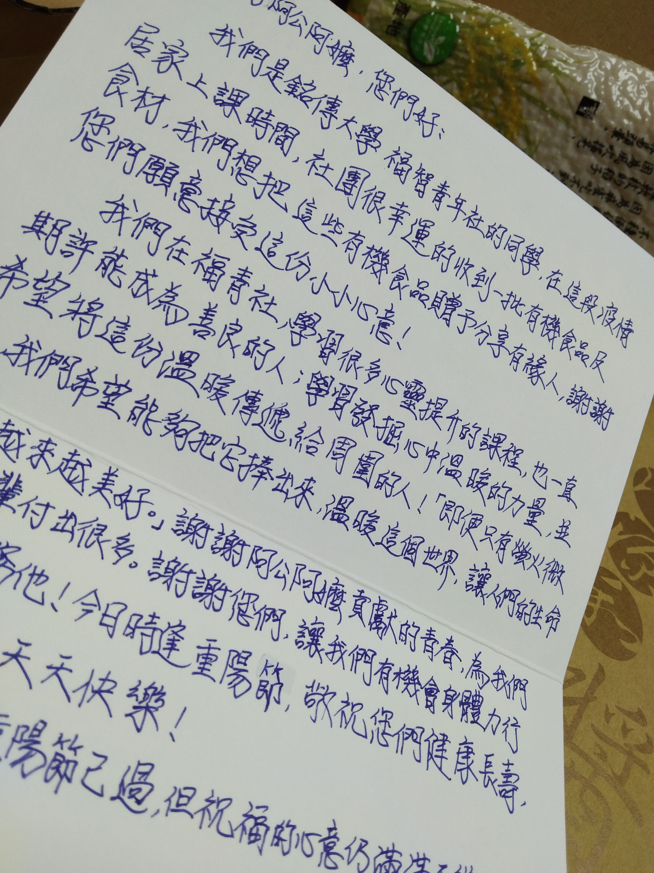 阿公阿嬤，您們好：
我們是銘傳大學福智青年社的同學，在這段疫情
居家上課時間，社團很幸運的收到一批有機食品及
食材，我們想把這些有機食品贈予分享有緣人，謝謝
您們願意接受這份小小心意！
我們在福青社，學習很多心靈提升的課程，也一直
期許能成為善良的人；學習發掘心中溫暖的力量，並
希望將這份溫暖傳遞給周圍的人！「即便只有螢火微
我們希望能夠把它捧出來，溫暖這個世界，讓人們的生命
越來越美好。」謝謝阿公阿嬤貢獻的青春，為我們
輩付出很多。謝謝您們，讓我們有機會身體力行
他！今日時逢重陽節，敬祝您們健康長壽，
天天快樂！
陽節已過，但祝福的心意仍滿滿